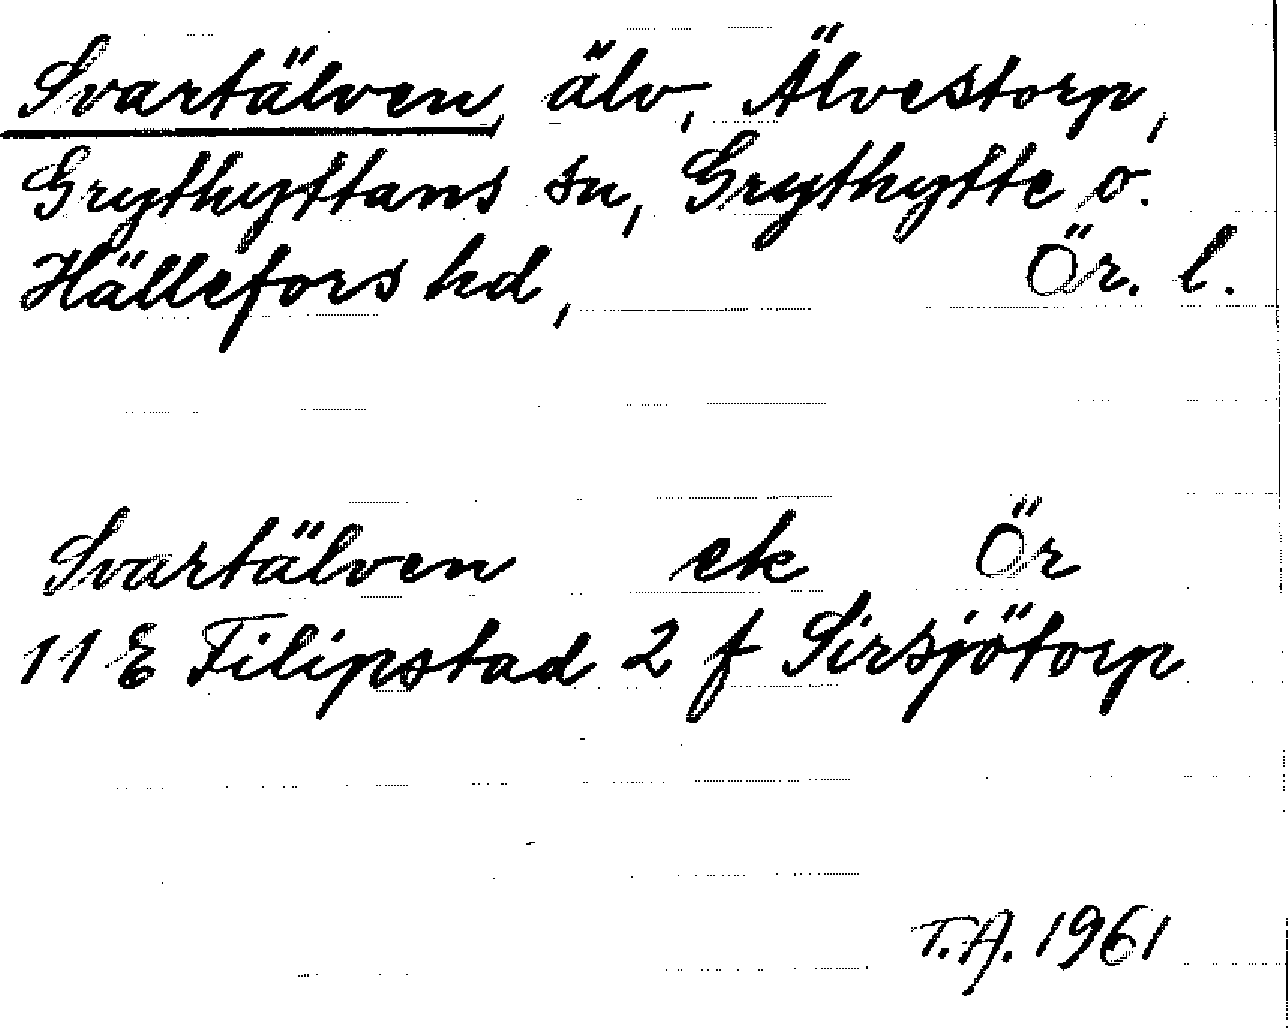 Svartälven, älv, Älvestorp,
Grythyttans sn, Grythytte o.
Hällefors hd, Ör. l.
Svartälven ek Ör
11 E Filipstad 2 f Sirsjötorp
T.A. 1961